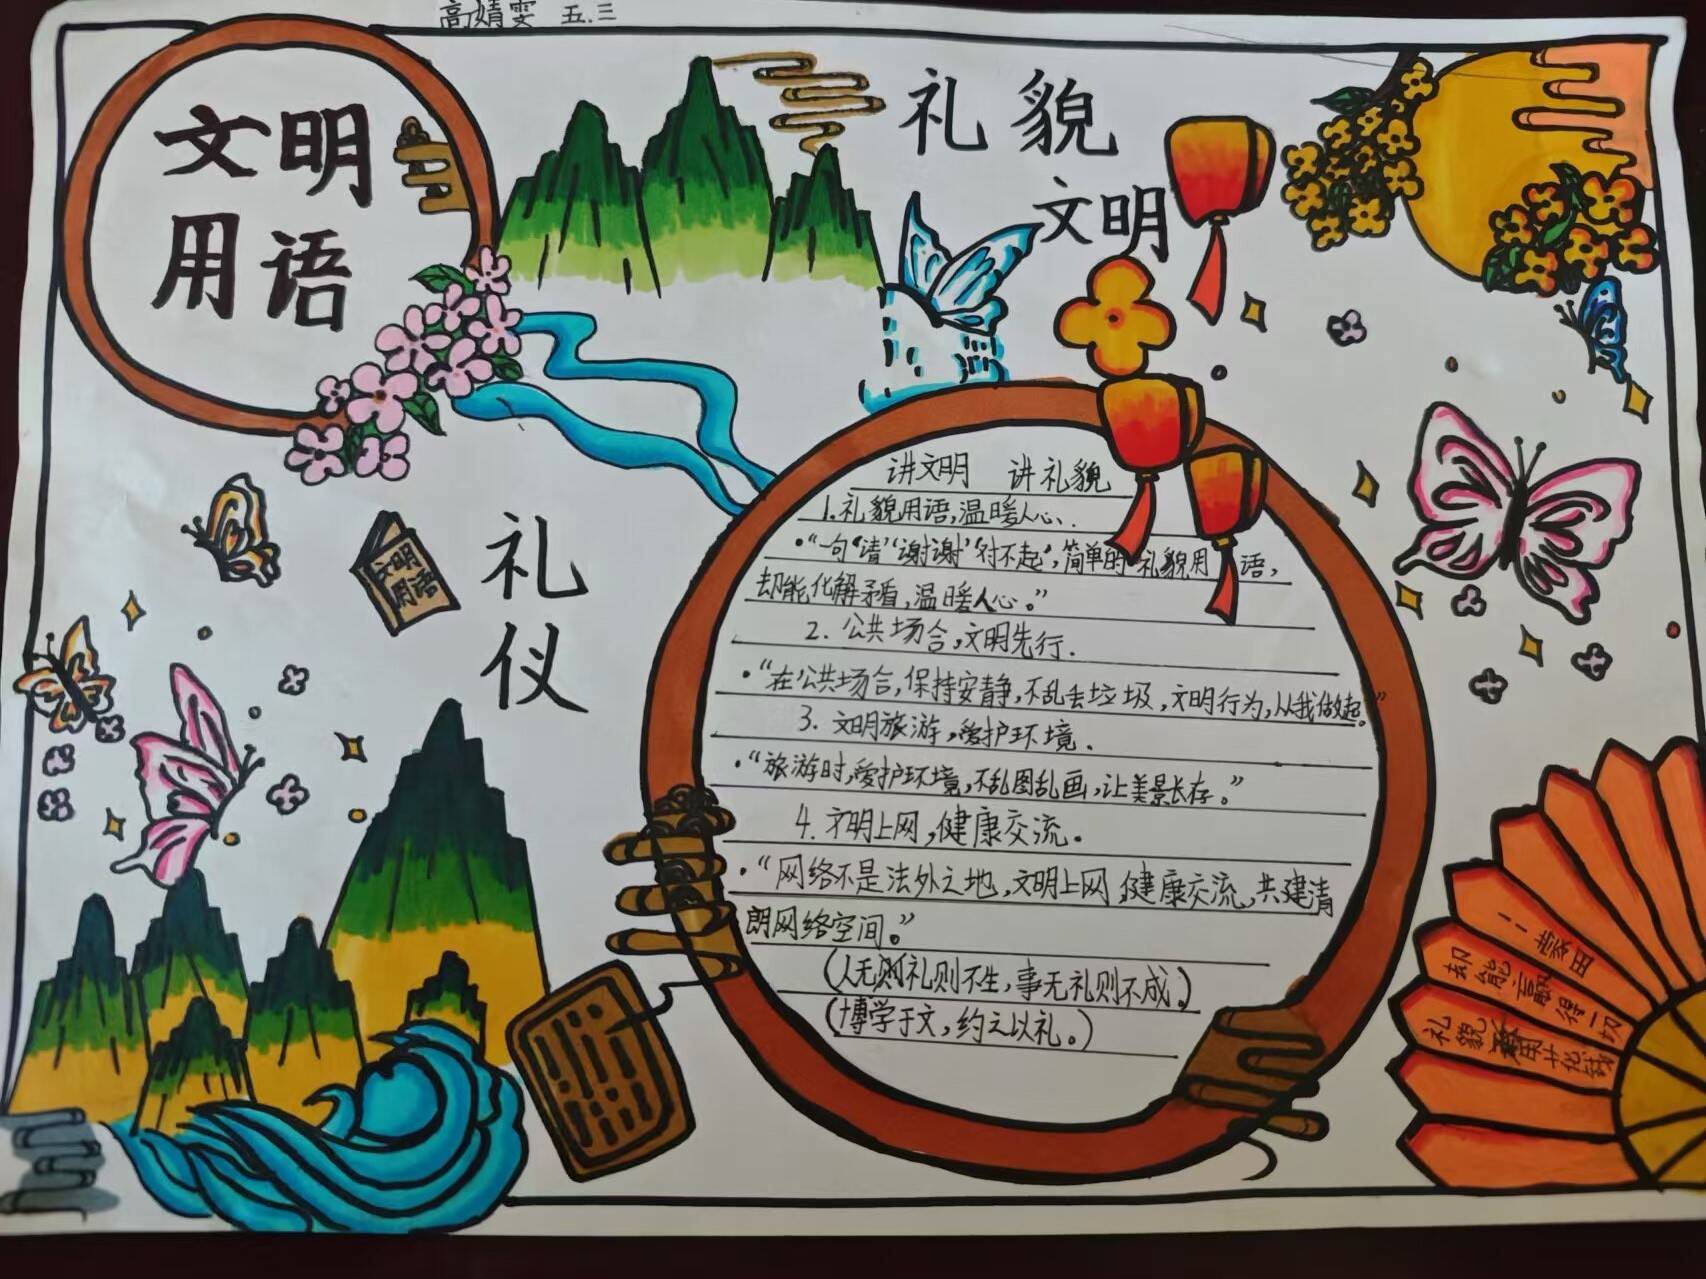 高婧雯 五.三
文明
用语
礼貌
文明
礼
仪
文明
用语
讲文明 讲礼貌
1.礼貌用语,温暖人心.
·“一句“请”“谢谢”“对不起”,简单的礼貌用语,
却能化解矛盾,温暖人心。”
2.公共场合,文明先行.
·“在公共场合,保持安静,不乱丢垃圾,文明行为,从我做起。”
3.文明旅游,爱护环境.
·“旅游时,爱护环境,不乱图乱画,让美景长存。”
4.文明上网,健康交流。
·“网络不是法外之地,文明上网,健康交流,共建清
朗网络空间。”
(人无礼则不生,事无礼则不成。)
(博学于文,约之以礼。)
礼貌不用花钱
却能赢得一切